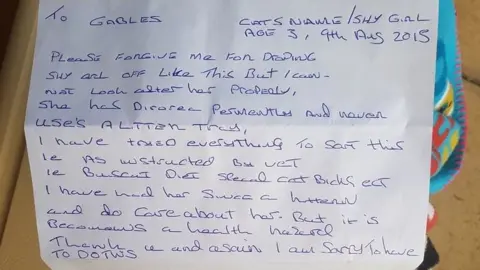 To GABLES CATS NAME/SHY GIRL
AGE 3, 9th AUG 2015
PLEASE FORGIVE me FOR DROPING
SHY GIRL OFF LIKE THIS BUT I CAN-
NOT LOOK after her Properly,
She has Diorea PERMENTLY And never
uses A LITTER TRAY,
I have tried everything To SORT this
ie AS instructed By vet
ie Buscuit Diet special cat Bicks ect
I have had her Since a kitten
and do care about her. But it is
Becomeing a health hazerd
Thank u and again I am Sorry To have
TO DO THIS